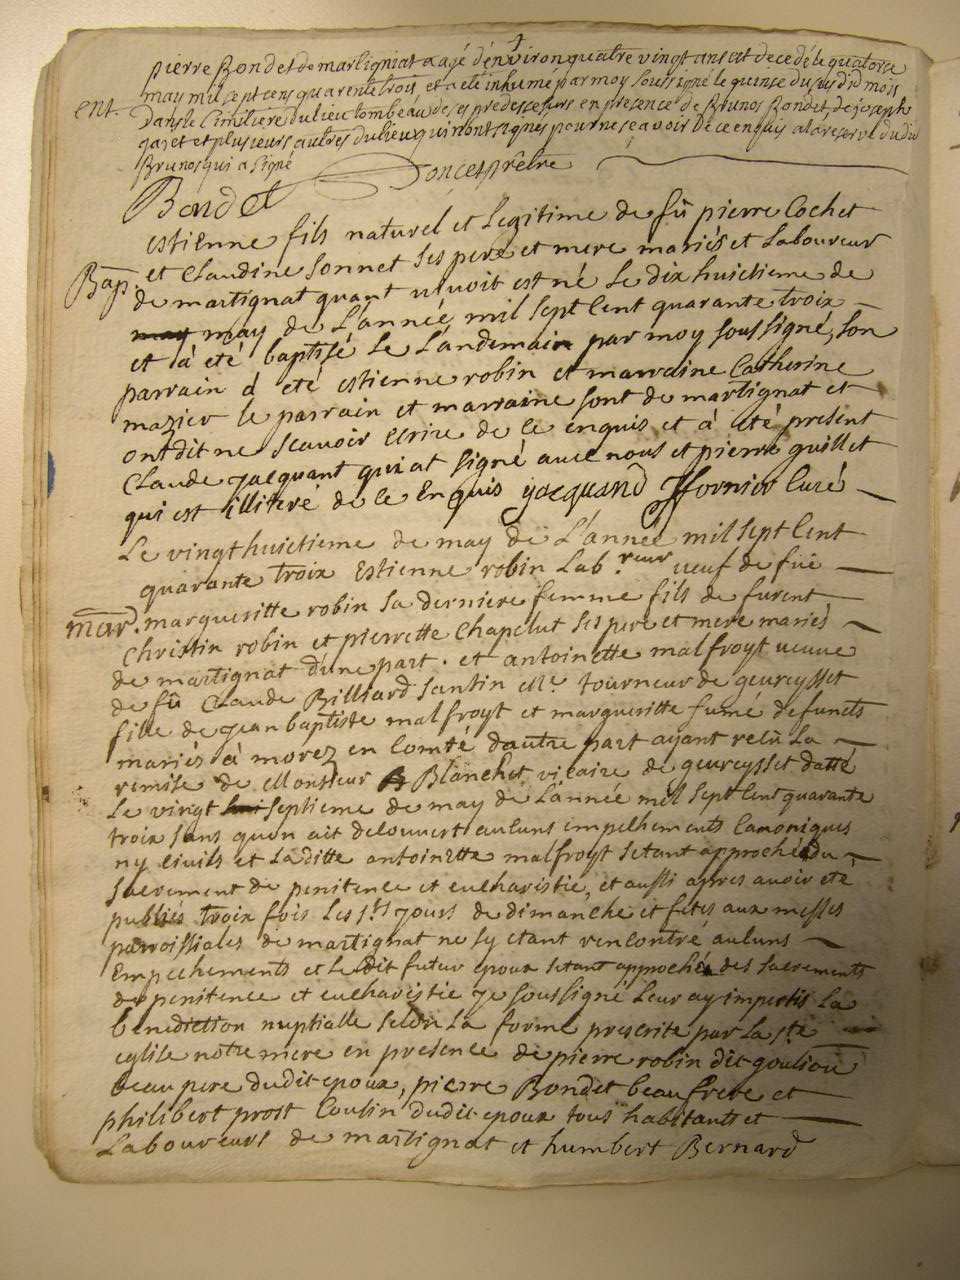 pierre Bondet de martigniat aagé d'environ quatre vingt ans est decedé le quatorze
may mil sept cens quarente trois, et a eté inhumé par moy soussigné le quinse du susdid mois
ent. dans le cimitiere du lieu tombeau de ses predescesseurs en presence de Brunos Bondet, de joseph
et plusieurs autres du lieu qui n'ont signés pour ne sçavoir de ce enquis a la reserve du dit
Brunos qui a signé
Bondet prêtre
estienne fils naturel et legitime de fû pierre Cochet
et Claudine Sonnet ses pere et mere mariés et Laboureur
Bap. de martignat quant vivoit est né le dix huictieme de
may may de L'année mil sept Cent quarante troix
et à eté baptisé le Landemain par moy soussigné, son
parrain à eté estienne robin et marraine Catherine
mazier le parrain et marraine sont de martignat et
ont dit ne scauoir Ecrire de ce enquis et à eté present
Claude jacquant qui at signé auec nous et pierre guillet
qui est illiteré de ce Enquis jacquand fornier Curé
Le vingt huictieme de may de L'année mil sept Cent
quarante troix Estienne robin Lab.reur ueuf de füe
mar. margueritte robin sa derniere femme fils de furent
Christin robin et pierrette Chapelut ses pere et mere mariés
de martignat d'une part. et antoinette malfroyt ueuue
de fû Claude Billiard Santin tourneur de geureysset
fille de jean baptiste malfroyt et margueritte fumé defuncts
mariés à morez en Comté d'autre part ayant recû La
remise de Monsieur Blanchet vicaire de geureysset datté
Le vingt septieme de may de L'année mil sept Cent quarante
troix sans qu'on ait decouvert auluns empechements Canoniques
ny Ciuils et Laditte antoinette malfroyt s'etant approchée du
Sacrement de penitence et eucharistie, et aussi apres auoir eté
publiés troix fois les s.ts jours de dimanche et fetes aux messes
parroissiales de martignat ne s'y etant rencontré auluns
Empechements et Le dit futur epoux s'etant approché des sacrements
de penitence et eucharistie je soussigné Leur ay imperti La
benediction nuptialle selon La forme prescrite par La s.te
eglise notre mere en presence de pierre robin dit gouliou
beau pere dudit epoux, pierre Bondet beau frere et
philibert prost Cousin dudit epoux tous habitants et
Laboureurs de martignat et humbert Bernard